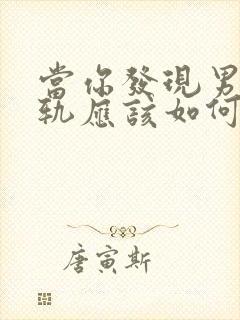 當你發現男
軌應該如何
唐寅斯